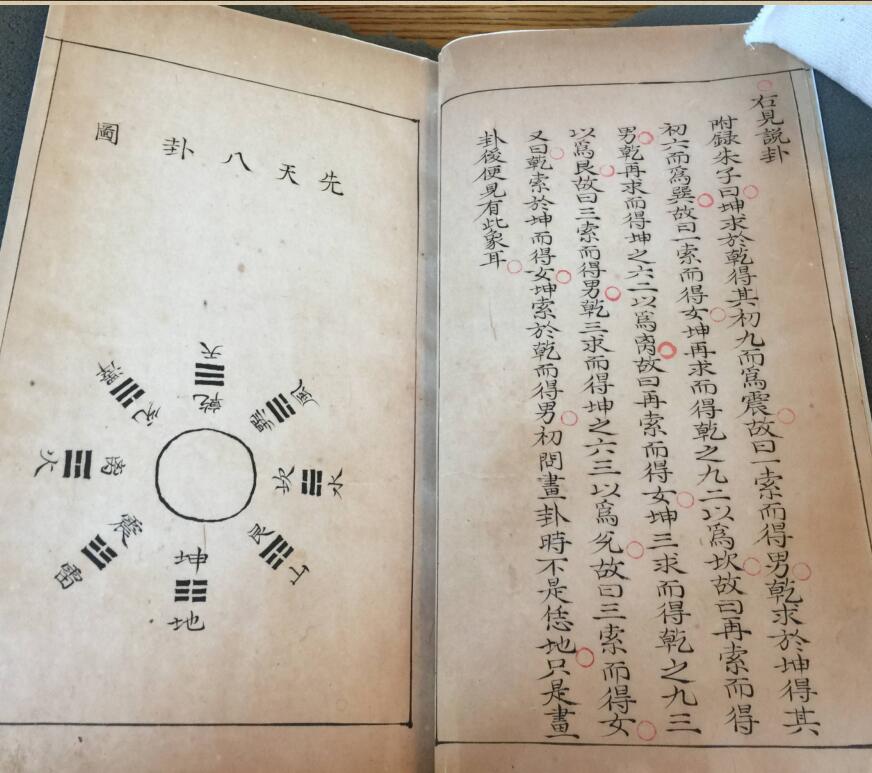 右見說卦
附錄朱子曰坤求於乾得其初九而爲震故曰一索而得男乾求於坤得其
初六而爲巽故曰一索而得女坤再求而得乾之九二以爲坎故曰再索而得
男乾再求而得坤之六二以爲离故曰再索而得女坤三求而得乾之九三
以爲艮故曰三索而得男乾三求而得坤之六三以爲兊故曰三索而得女
又曰乾索於坤而得女坤索於乾而得男初問畫卦時不是恁地只是畫
卦後便見有此象耳
先天八卦圖
天 ☰ 乾
風 ☴ 巽
水 ☵ 坎
山 ☶ 艮
坤 ☷ 地
震 ☳ 雷
离 ☲ 火
兊 ☱ 澤